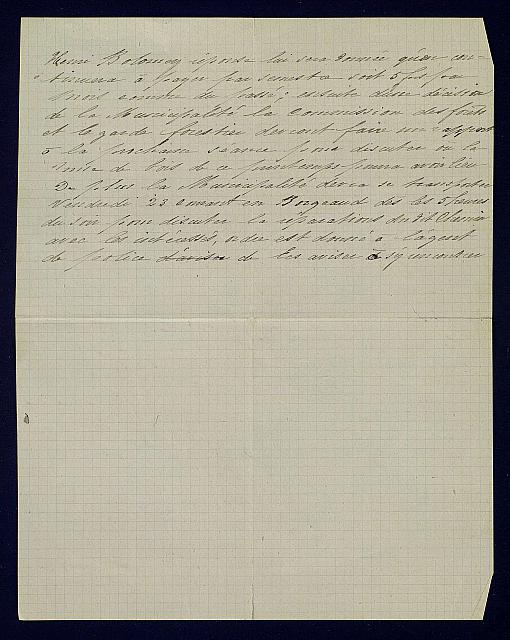 Henri Bolomey réponse lui sera donnée qu'on con-
tinuera à payer par semestre soit 5 frs par
mois comme du passé; ensuite d'une décision
de la Municipalité la Commission des forêts
et le garde forestier devront faire un rapport
à la prochaine séance pour discuter où la
de bois de ce printemps pourra avoir lieu
De plus la Municipalité devra se transporter
Vendredi 23 et en Borgeaud dès les 5 heures
du soir pour discuter la réparations du dit Chemin
avec les intéressés, ordre est donné à l'agent
de police d'aviser de les aviser à s'y rencontrer